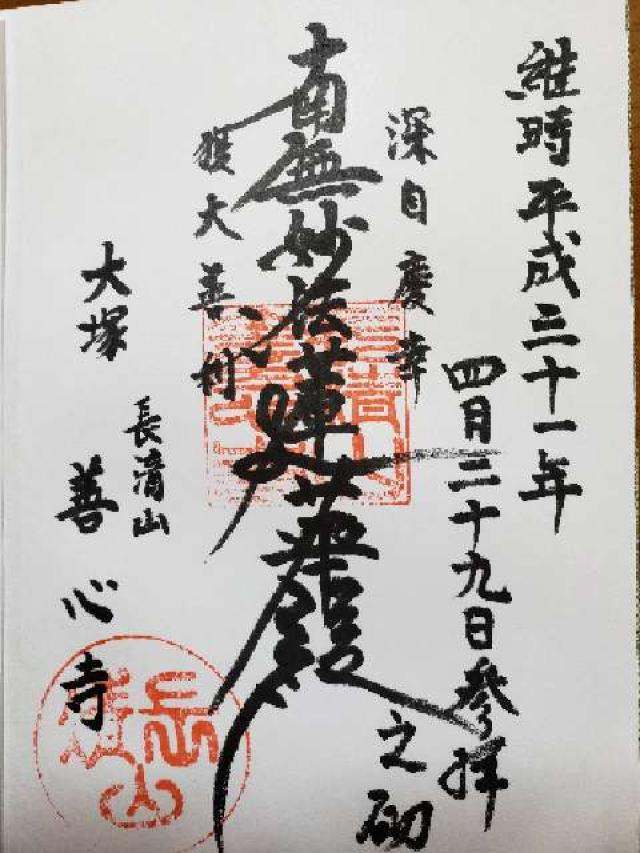 維時平成三十一年
四月二十九日参拝
深自慶幸
南無妙法蓮華経
之砌
獲大善利
大塚
長清山
善心寺